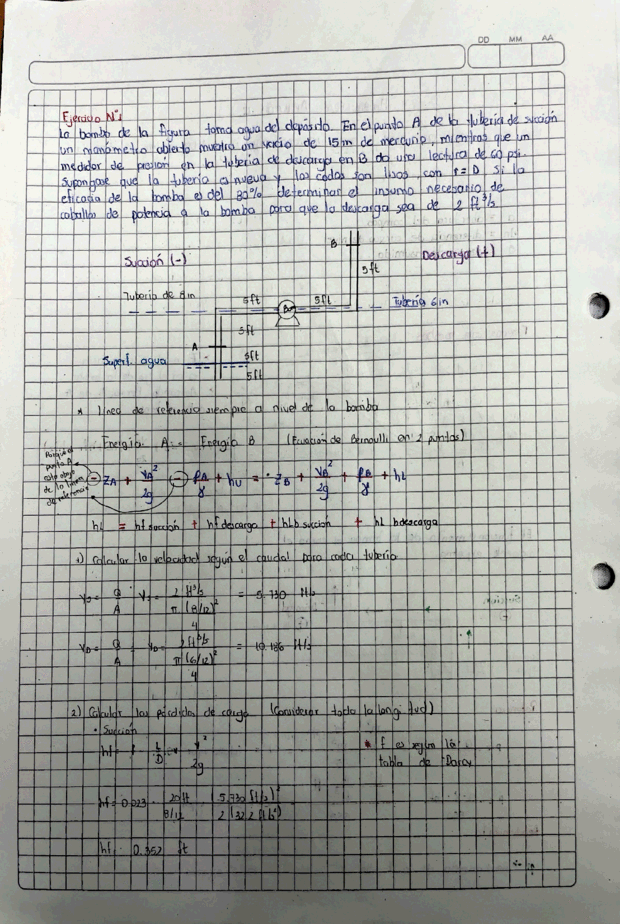 DD MM AA
Ejercicio N°1
La bomba de la figura toma agua del depósito. En el punto A de la tubería de succión
un manómetro abierto muestra un vacío de 15m de mercurio, mientras que un
medidor de presión en la tubería de descarga en B da una lectura de 60 psi.
Supongase que la tubería es nueva y los codos son lisos, con r = D Si la
eficacia de la bomba es del 82% determinar el insumo necesario de
caballos de potencia a la bomba para que la descarga sea de 2 ft³/s
B
Succión (-)
Descarga (+)
5ft
Tubería de 8in
5ft
5ft
Tubería 6in
5ft
A
Superf. agua
5ft
5ft
* Linea de referencia siempre a nivel de la bomba
Energía A = Energía B (Ecuación de Bernoulli en 2 puntos)
punto A
esta abajo
de la linea
de referencia
- ZA + VA²/2g - PA/γ + hu = ZB + VB²/2g + PB/γ + hL
hL = hf succión + hf descarga + hLb succion + hL bdescarga
1) Calcular la velocidad según el caudal para cada tubería
Vs = Q/A Vs = 2 ft³/s / π (8/12)²/4 = 5.730 ft/s
VD = Q/A = VD = 2ft³/s / π(6/12)²/4 = 10.186 ft/s
2) Calcular las pérdidas de carga (Considerar toda la longitud)
• Succión
hf = f · L/D · V²/2g
* f es según la
tabla de Darcy
hf = 0.023 · 20ft / 8/12 · (5.730 ft/s)² / 2 (32.2 ft/s²)
hf = 0.352 ft